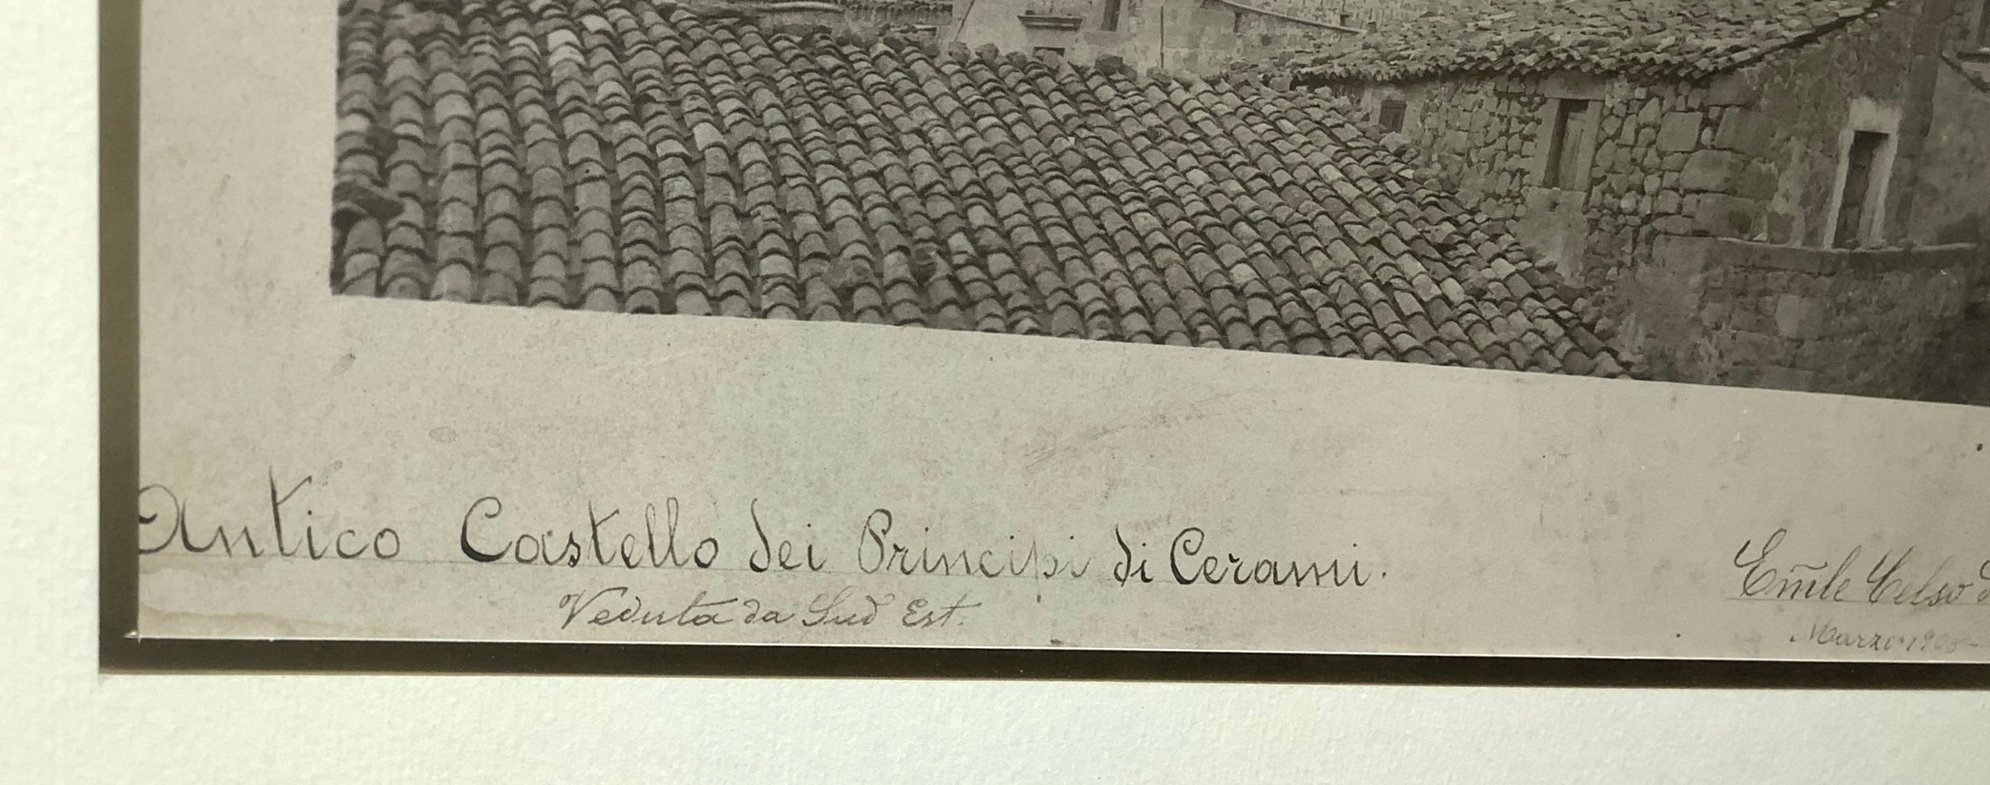 Antico Castello dei Principi di Cerami.
Veduta da Sud Est.
Celso
Marzo